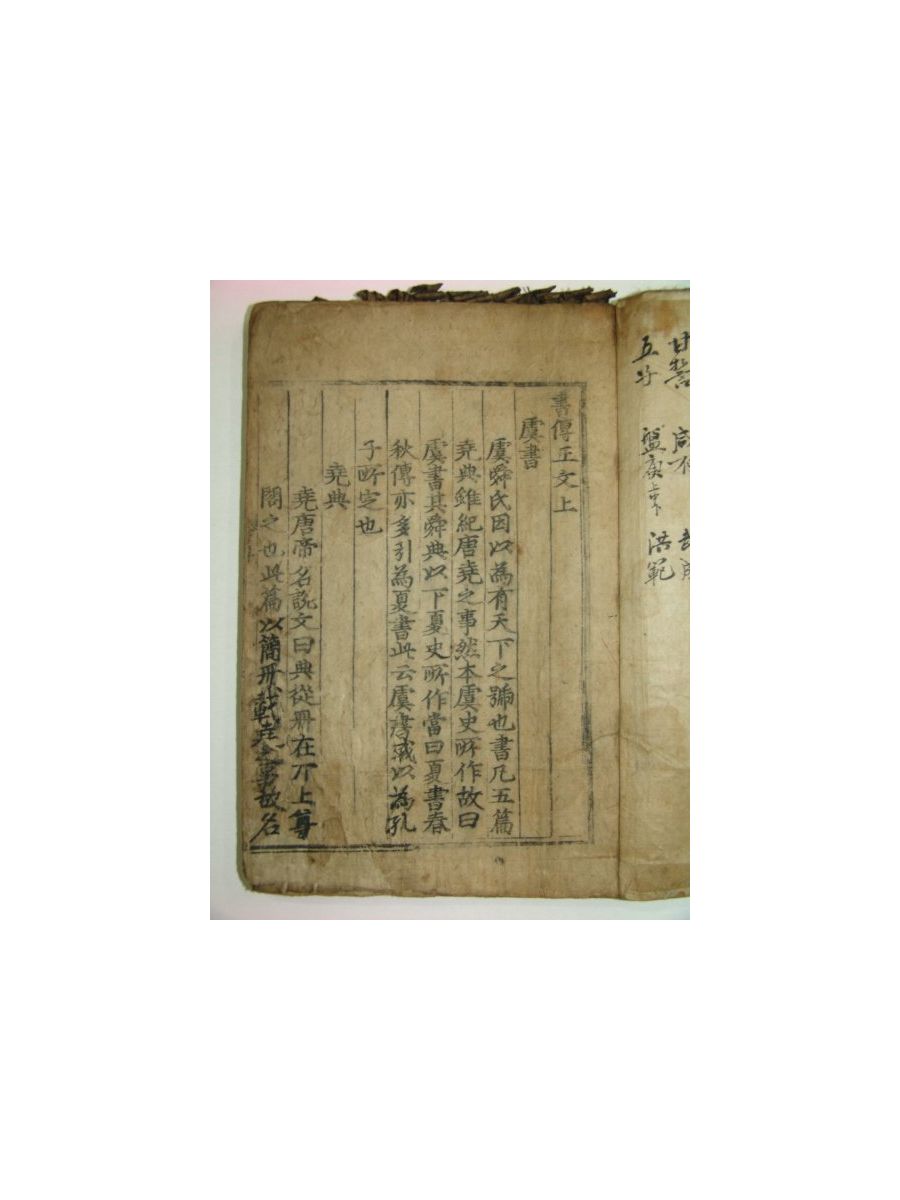 甘誓
五子
盤庚上中下 洪範
書傳正文上
虞書
虞舜氏因以為有天下之號也書凡五篇
堯典雖紀唐堯之事然本虞史所作故曰
虞書其舜典以下夏史所作當曰夏書春
秋傳亦多引為夏書此云虞書或以為孔
子所定也
堯典
堯唐帝名說文曰典從冊在丌上尊
閣之也此篇以簡冊載堯之事故名